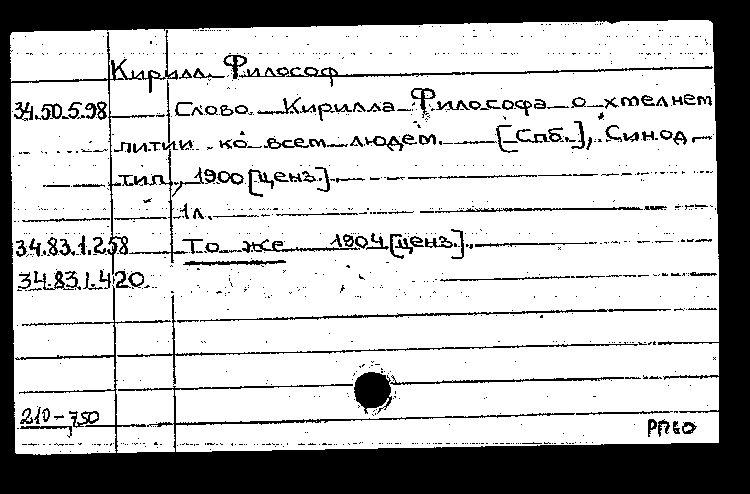 Кирилл Философ
34.50.5.98 Слово Кирилла Философа о хмелнем
питии ко всем людем. [Спб.], Синод.
тип., 1900 [ценз.].
1л.
34.83.1.258 То же 1904 [ценз.].
34.83.1.420
210-750
РПБО